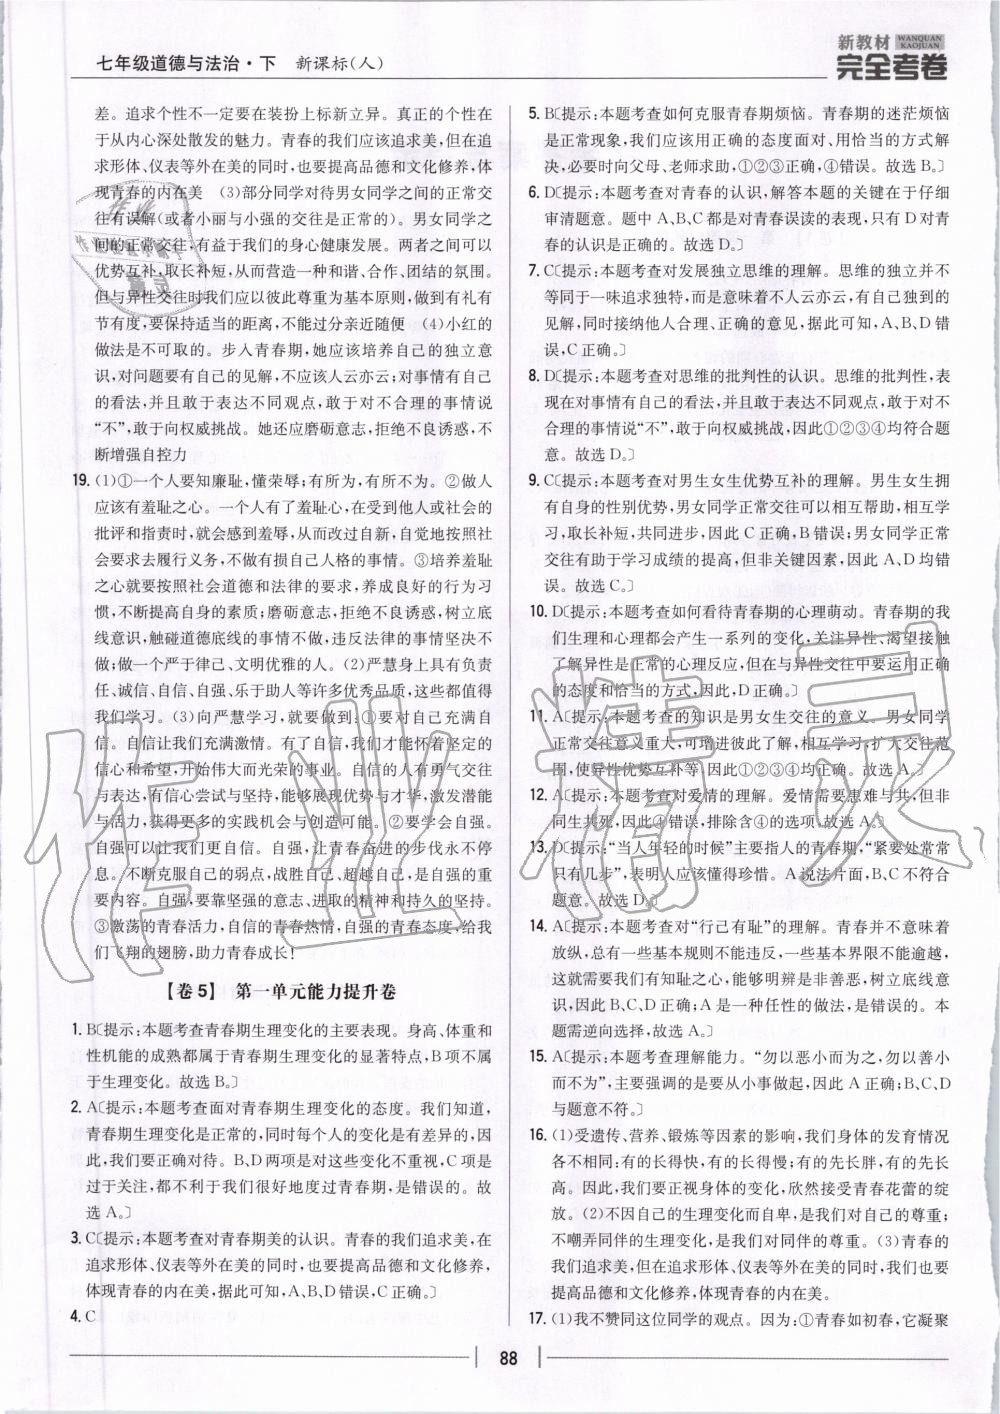 七年级道德与法治·下 新课标(人)
新教材 WANQUAN KAOJUAN
完全考卷
差。追求个性不一定要在装扮上标新立异。真正的个性在
于从内心深处散发的魅力。青春的我们应该追求美,但在追
求形体、仪表等外在美的同时,也要提高品德和文化修养,体
现青春的内在美 (3)部分同学对待男女同学之间的正常交
往有误解(或者小丽与小强的交往是正常的)。男女同学之
间的正常交往,有益于我们的身心健康发展。两者之间可以
优势互补,取长补短,从而营造一种和谐、合作、团结的氛围。
但与异性交往时我们应以彼此尊重为基本原则,做到有礼有
节有度,要保持适当的距离,不能过分亲近随便 (4)小红的
做法是不可取的。步入青春期,她应该培养自己的独立意
识,对问题要有自己的见解,不应该人云亦云;对事情有自己
的看法,并且敢于表达不同观点,敢于对不合理的事情说
“不”,敢于向权威挑战。她还应磨砺意志,拒绝不良诱惑,不
断增强自控力
19. (1)①一个人要知廉耻,懂荣辱;有所为,有所不为。②做人
应该有羞耻之心。一个人有了羞耻心,在受到他人或社会的
批评和指责时,就会感到羞辱,从而改过自新,自觉地按照社
会要求去履行义务,不做有损自己人格的事情。③培养羞耻
之心就要按照社会道德和法律的要求,养成良好的行为习
惯,不断提高自身的素质;磨砺意志,拒绝不良诱惑,树立底
线意识,触碰道德底线的事情不做,违反法律的事情坚决不
做;做一个严于律己、文明优雅的人。(2)严慧身上具有负责
任、诚信、自信、自强、乐于助人等许多优秀品质,这些都值得
我们学习。(3)向严慧学习,就要做到:①要对自己充满自
信。自信让我们充满激情。有了自信,我们才能怀着坚定的
信心和希望,开始伟大而光荣的事业。自信的人有勇气交往
与表达,有信心尝试与坚持,能够展现优势与才华,激发潜能
与活力,获得更多的实践机会与创造可能。②要学会自强。
自强可以让我们更自信。自强,让青春奋进的步伐永不停
息。不断克服自己的弱点,战胜自己、超越自己,是自强的重
要内容。自强,要靠坚强的意志、进取的精神和持久的坚持。
③激荡的青春活力,自信的青春热情,自强的青春态度,给我
们飞翔的翅膀,助力青春成长!
【卷5】 第一单元能力提升卷
1. B〔提示:本题考查青春期生理变化的主要表现。身高、体重和
性机能的成熟都属于青春期生理变化的显著特点,B项不属
于生理变化。故选B。〕
2. A〔提示:本题考查面对青春期生理变化的态度。我们知道,
青春期生理变化是正常的,同时每个人的变化是有差异的,因
此,我们要正确对待。B、D两项是对这些变化不重视,C项是
过于关注,都不利于我们很好地度过青春期,是错误的。故
选A。〕
3. C〔提示:本题考查对青春期美的认识。青春的我们追求美,在
追求形体、仪表等外在美的同时,也要提高品德和文化修养,
体现青春的内在美,据此可知,A、B、D错误,C正确。〕
4. C
5. B〔提示:本题考查如何克服青春期烦恼。青春期的迷茫烦恼
是正常现象,我们应该用正确的态度面对、用恰当的方式解
决,必要时向父母、老师求助,①②③正确,④错误。故选B。〕
6. D〔提示:本题考查对青春的认识,解答本题的关键在于仔细
审清题意。题中A、B、C都是对青春误读的表现,只有D对青
春的认识是正确的。故选D。〕
7. C〔提示:本题考查对发展独立思维的理解。思维的独立并不
等同于一味追求独特,而是意味着不人云亦云,有自己独到的
见解,同时接纳他人合理、正确的意见,据此可知,A、B、D错
误,C正确。〕
8. D〔提示:本题考查对思维的批判性的认识。思维的批判性,表
现在对事情有自己的看法,并且敢于表达不同观点,敢于对不
合理的事情说“不”,敢于向权威挑战。因此①②③④均符合题
意。故选D。〕
9. C〔提示:本题考查对男生女生优势互补的理解。男生女生拥
有自身的性别优势,男女同学正常交往可以相互帮助,相互学
习,取长补短,共同进步,因此C正确,B错误;男女同学正常
交往有助于学习成绩的提高,但非关键因素,因此A、D均错
误。故选C。〕
10. D〔提示:本题考查如何看待青春期的心理萌动。青春期的我
们生理和心理都会产生一系列的变化,关注异性、渴望接触
了解异性是正常的心理反应,但在与异性交往中要运用正确
的态度和恰当的方式,因此,D正确。〕
11. A〔提示:本题考查的知识是男女生交往的意义。男女同学
正常交往意义重大,可增进彼此了解,相互学习,扩大交往范
围,使异性优势互补等,因此①②③④均正确。故选A。〕
12. A〔提示:本题考查对爱情的理解。爱情需要患难与共,但非
同生共死,因此④错误,排除含④的选项,故选A。〕
13. D〔提示:“当人年轻的时候”主要指人的青春期,“紧要处常常
只有几步”,表明人应该懂得珍惜。A说法片面,B、C不符合
题意。故选D。〕
14. A〔提示:本题考查对“行己有耻”的理解。青春并不意味着
放纵,总有一些基本规则不能违反,一些基本界限不能逾越,
这就需要我们有知耻之心,能够明辨是非善恶,树立底线意
识,因此B、C、D正确;A是一种任性的做法,是错误的。本
题需逆向选择,故选A。〕
15. A〔提示:本题考查理解能力。“勿以恶小而为之,勿以善小
而不为”,主要强调的是要从小事做起,因此A正确;B、C、D
与题意不符。〕
16. (1)受遗传、营养、锻炼等因素的影响,我们身体的发育情况
各不相同:有的长得快,有的长得慢;有的先长胖,有的先长
高。因此,我们要正视身体的变化,欣然接受青春花蕾的绽
放。(2)不因自己的生理变化而自卑,是我们对自己的尊重;
不嘲弄同伴的生理变化,是我们对同伴的尊重。(3)青春的
我们追求美,但在追求形体、仪表等外在美的同时,我们也要
提高品德和文化修养,体现青春的内在美。
17. (1)我不赞同这位同学的观点。因为:①青春如初春,它凝聚
88
作业精灵